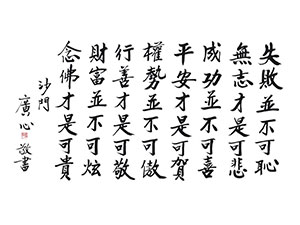 失敗並不可恥
無志才是可悲
成功並不可喜
平安才是可賀
權勢並不可傲
行善才是可敬
財富並不可炫
念佛才是可貴
沙門
廣心
敬書